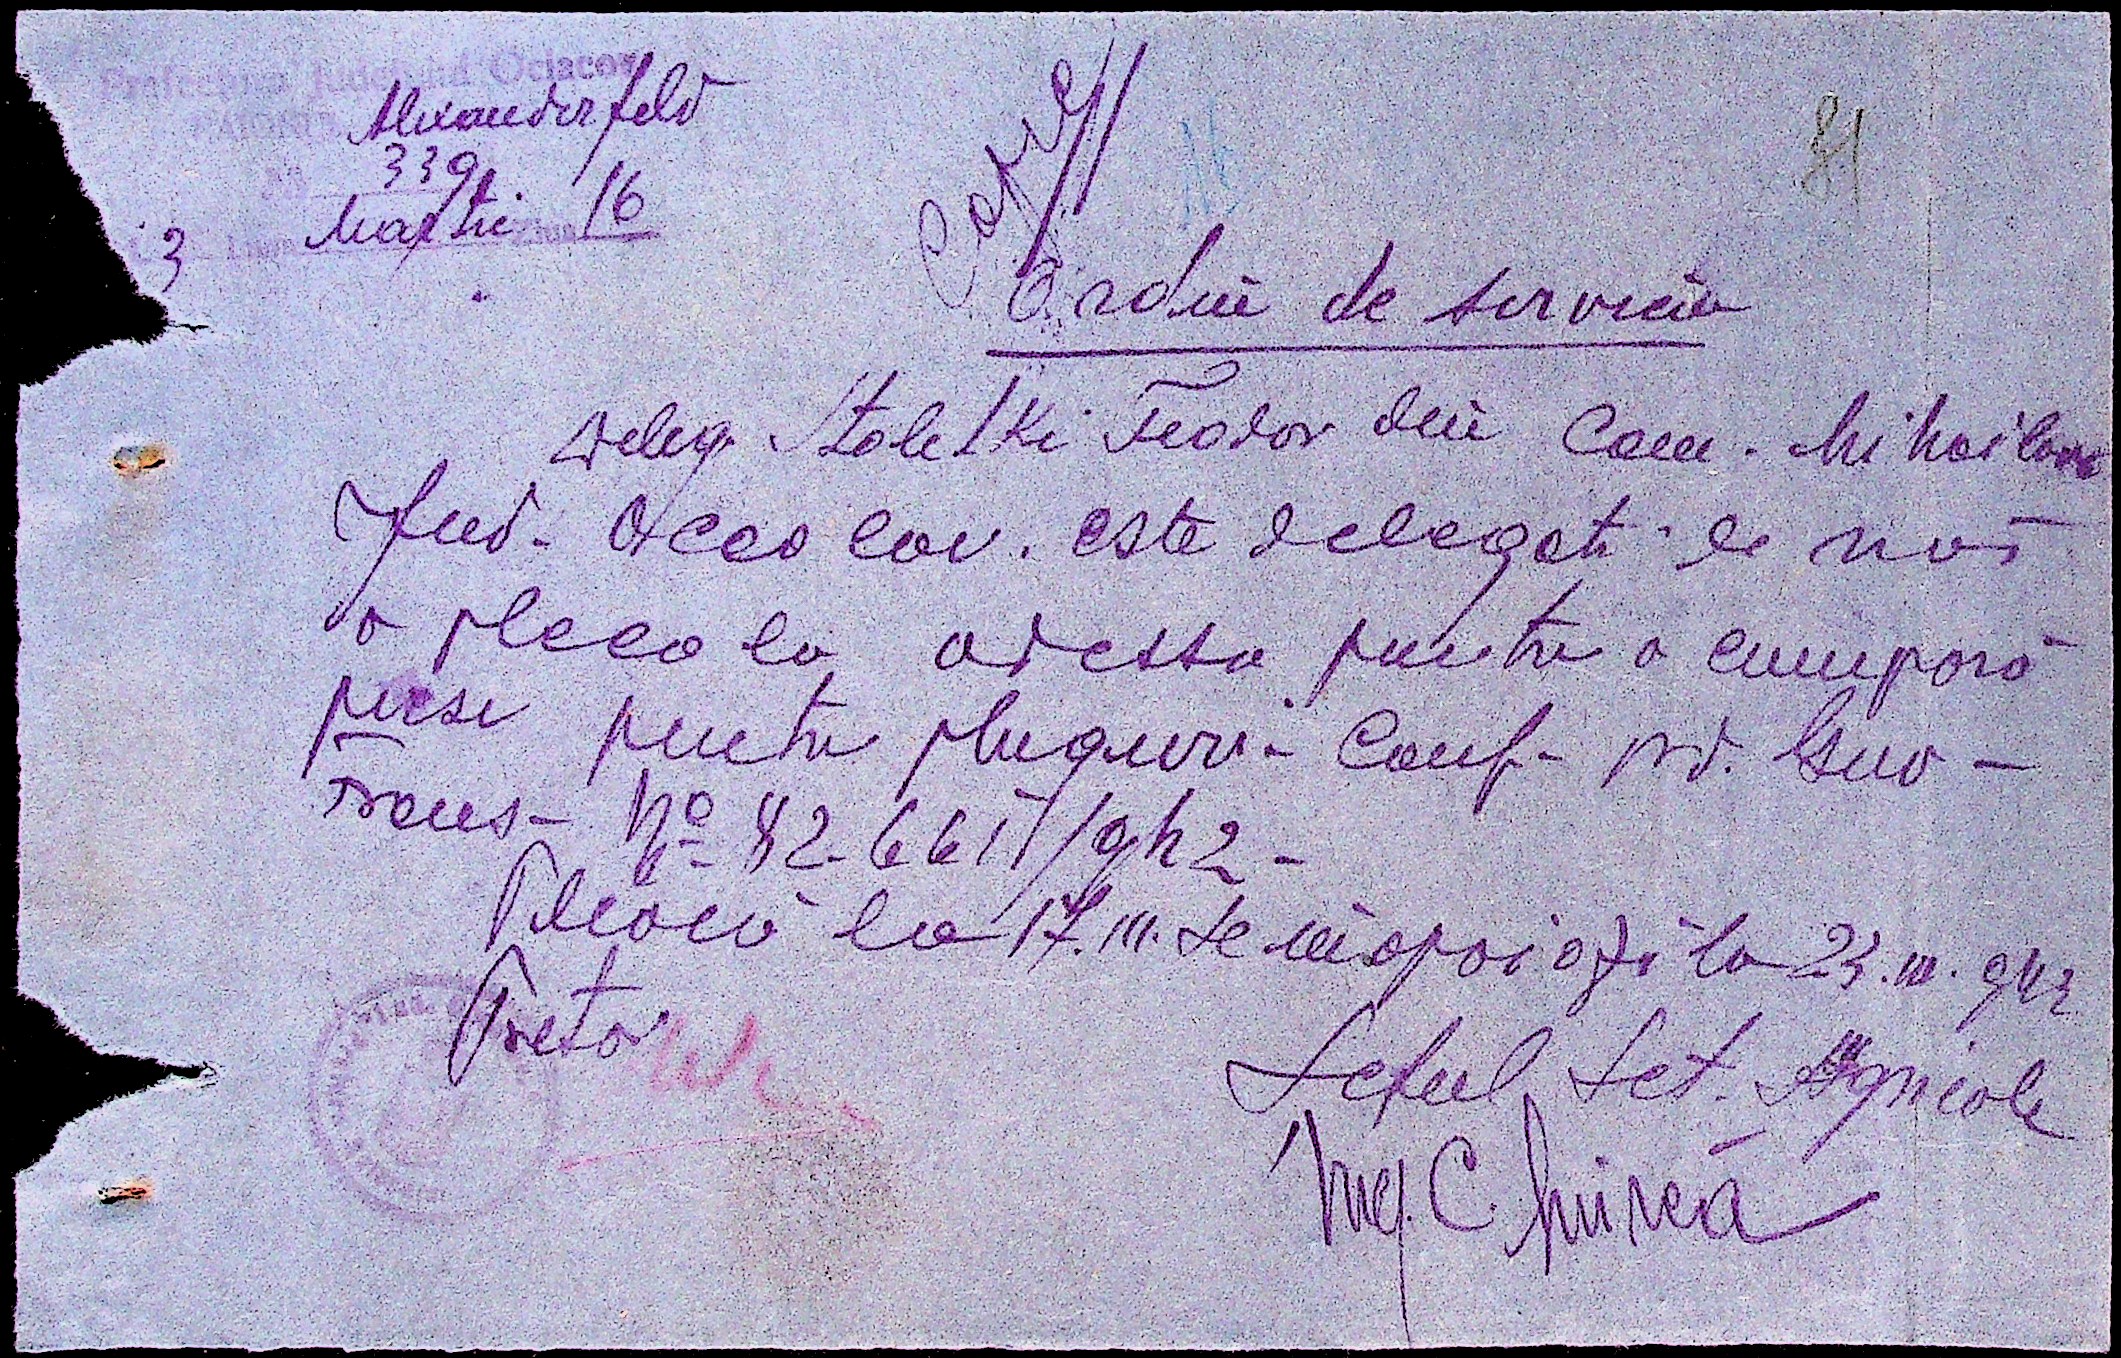 Prefectura Județului Ociacov
Alexanderfeld
No. 339
3 Luna Martie Ziua 16
Copie
81
Ordin de serviciu
Deleg. Stoletki Feodor din Com. Mihailovca
Jud. Oceacov. este delegat de noi
a pleca la Odessa pentru a cumpăra
piese pentru pluguri - Conf. ord. Guv-
Trans- No 82.661/942-
Pleacă la 17.III. se înapoiază la 23.III.943
Pretor
Șeful Sct. Agricole
Ing. C. Mircea